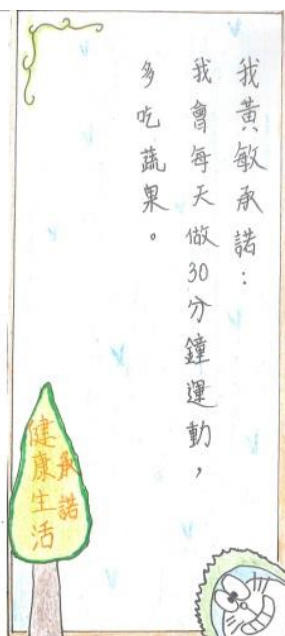 我黃敏承諾：
我會每天做30分鐘運動，
多吃蔬果。
承諾
健康生活